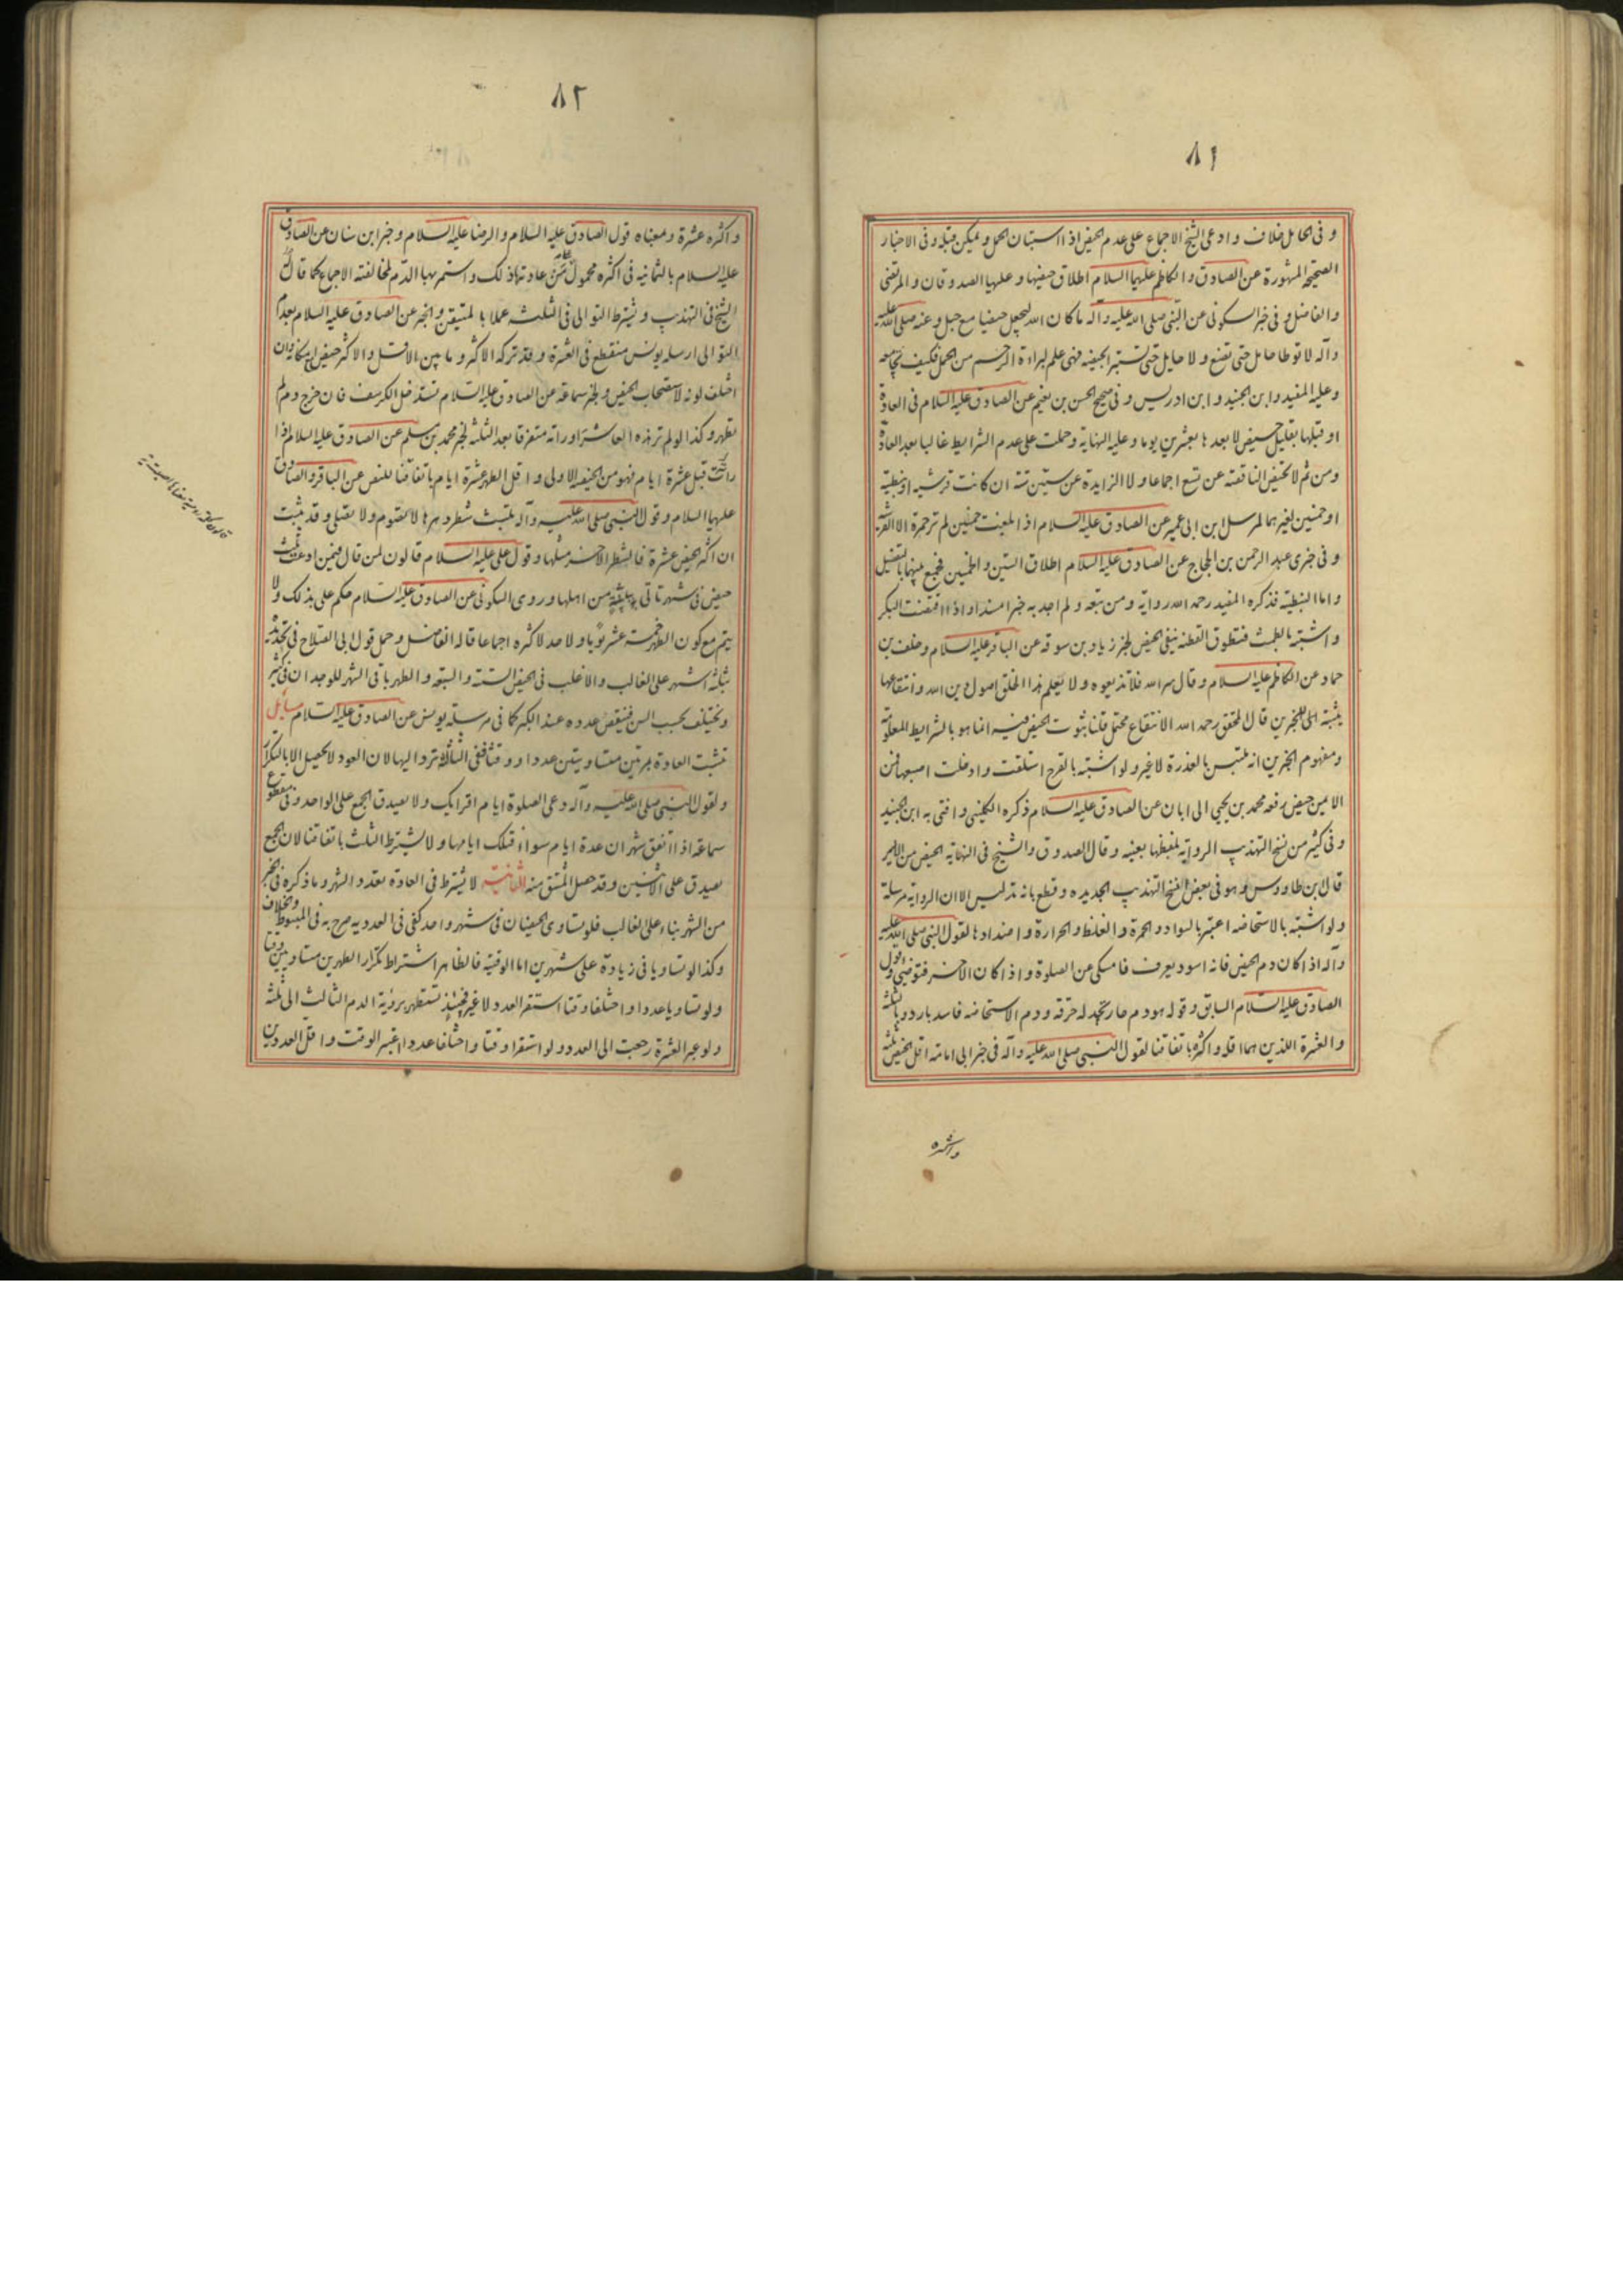 ٨١
و فى الحامل خلاف و ادعى الشيخ الاجماع على عدم الحيض اذا استبان الحمل و يمكن قبله و فى الاخبار
الصحيحة المشهورة عن الصادق و الكاظم عليهما السلام اطلاق حيضها و عليها الصدوقان و المرتضى
و الفاضل و فى خبر السكونى عن النبى صلى الله عليه و آله ما كان الله ليجعل حيضا مع حبل و عنه صلى الله عليه
و آله لا توطا حامل حتى تضع و لا حايل حتى تستبرئ بحيضة فهى علم لبراءة الرحم من الحمل فكيف تجامعه
و عليه المفيد و ابن الجنيد و ابن ادريس و فى صحيح الحسن بن نعيم عن الصادق عليه السلام فى العادة
او قبلها بقليل حيض لا بعدها بعشرين يوما و عليه النهاية و حملت على عدم الشرايط غالبا بعد العادة
و من ثم لا تحيض الناقصة عن تسع اجماعا و لا الزايدة عن ستين سنة ان كانت قرشية او نبطية
او خمسين لغيرهما لمرسل ابن ابى عمير عن الصادق عليه السلام اذا بلغت خمسين لم تر حمرة الا القرشية
و فى خبرى عبد الرحمن بن الحجاج عن الصادق عليه السلام اطلاق الستين و الخمسين فجمع بينهما بالتفصيل
و اما النبطية فذكره المفيد رحمه الله رواية و من تبعه و لم اجد به خبرا مسندا و اذا اقتضت البكر
و اشتبه بالطمث فتطوق القطنة ينفى الحيض لخبر زياد بن سوقة عن الباقر عليه السلام و خلف بن
حماد عن الكاظم عليه السلام و قال سر الله فلا تذيعوه و لا تعلم هذا الخلق اصول دين الله و انتقاعها
يثبته للخبرين قال المحقق رحمه الله الانتقاع محتمل قلنا ثبوت الحيض فيه انما هو بالشرايط المعلومة
و مفهوم الخبرين انه ملتبس بالعذرة لا غير و لو اشتبه بالقرح استلقت و ادخلت اصبعها فمن
الايمن حيض رفعه محمد بن يحيى الى ابان عن الصادق عليه السلام ذكره الكلينى و افتى به ابن الجنيد
و فى كثير من نسخ التهذيب الرواية بلفظها بعينه و قال الصدوق و الشيخ فى النهاية الحيض من الايسر
قال ابن طاووس و هو فى بعض نسخ التهذيب الجديده و قطع بانه تدليس الا ان الرواية مرسلة
و لو اشتبه بالاستحاضه اعتبر بالسواد و الحمرة و الغلظ و الحرارة و اضدادها لقول النبى صلى الله عليه
و آله اذا كان دم الحيض فانه اسود يعرف فامسكى عن الصلوة و اذا كان الاخر فتوضئى و قول
الصادق عليه السلام السابق و قوله هو دم حار تجد له حرقة و دم الاستحاضه فاسد بارد و بالثلثة
و العشرة اللذين هما اقله و اكثره باتفاقنا لقول النبى صلى الله عليه و آله فى خبر ابى امامة اقل الحيض ثلثة
و اكثره
٨٢
و اكثره عشرة و معناه قول الصادق عليه السلام و الرضا عليه السلام و خبر ابن سنان عن الصادق
عليه السلام بالثمانية فى اكثره محمول على من عادتها ذلك و استمر بها الدم لمخالفته الاجماع كما قال
الشيخ فى التهذيب و يشترط التوالى فى الثلثه عملا بالمتيقن و الخبر عن الصادق عليه السلام بعدم
التوالى ارسله يونس منقطع فى العشرة و قد تركه الاكثر و ما بين الاقل و الاكثر حيض لامكانه و ان
اختلف لونه لاستصحاب الحيض و لخبر سماعة عن الصادق عليه السلام تستدخل الكرسف فان خرج دم لم
تطهر و كذا لو لم تر هذه العاشر او راته متفرقا بعد الثلثه لخبر محمد بن مسلم عن الصادق عليه السلام اذا
رات قبل عشرة ايام فهو من الحيضة الاولى و اقل الطهر عشرة ايام باتفاقنا للنص عن الباقر و الصادق
عليهما السلام و قول النبى صلى الله عليه و آله تلبث شطر دهرها لا تصوم و لا تصلى و قد يثبت
ان اكثر الحيض عشرة فالشطر الاخر مثلها و قول على عليه السلام قالون لمن قال فيمن ادعت ثلث
حيض فى شهر تاتى ببينة من اهلها و روى السكونى عن الصادق عليه السلام حكم على بذلك و لا
يتم مع كون الطهر خمسة عشر يوما و لا حد لاكثره اجماعا قاله الفاضل و حمل قول ابى الصلاح فى تحديده
بثلثة اشهر على الغالب و الاغلب فى الحيض الستة و السبعة و الطهر باقى الشهر للوجدان فى كثير
و يختلف بحسب السن فينقص عدده عند الكبر كما فى مرسلة يونس عن الصادق عليه السلام مسايل
تثبت العادة بمرتين متساويتين عددا و وقتا ففى الثالثة ترد اليها لان العود لا يحصل الا بالتكرار
و لقول النبى صلى الله عليه و آله دعى الصلوة ايام اقرائك و لا يصدق الجمع على الواحد و فى مقطوع
سماعة اذا اتفق شهران عدة ايام سواء فتلك ايامها و لا يشترط الثلث باتفاقنا لان الجمع
يصدق على الاثنين و قد حصل المشتق منه الثانية لا يشترط فى العادة تعدد الشهر و ما ذكره فى الخبر
من الشهر بناء على الغالب فلو تساوى الحيضان فى شهر واحد كفى فى العدديه صرح به فى المبسوط و الخلاف
و كذا لو تساويا فى زيادة على شهرين اما الوقتية فالظاهر اشتراط تكرار الطهرين متساويين وقتا
و لو تساويا عددا و اختلفا وقتا استقر العدد لا غير فحينئذ تستظهر برؤية الدم الثالث الى ثلثة
و لو عبر العشرة رجعت الى العدد و لو استقرا وقتا و اختلفا عددا اعتبر الوقت و اقل العددين